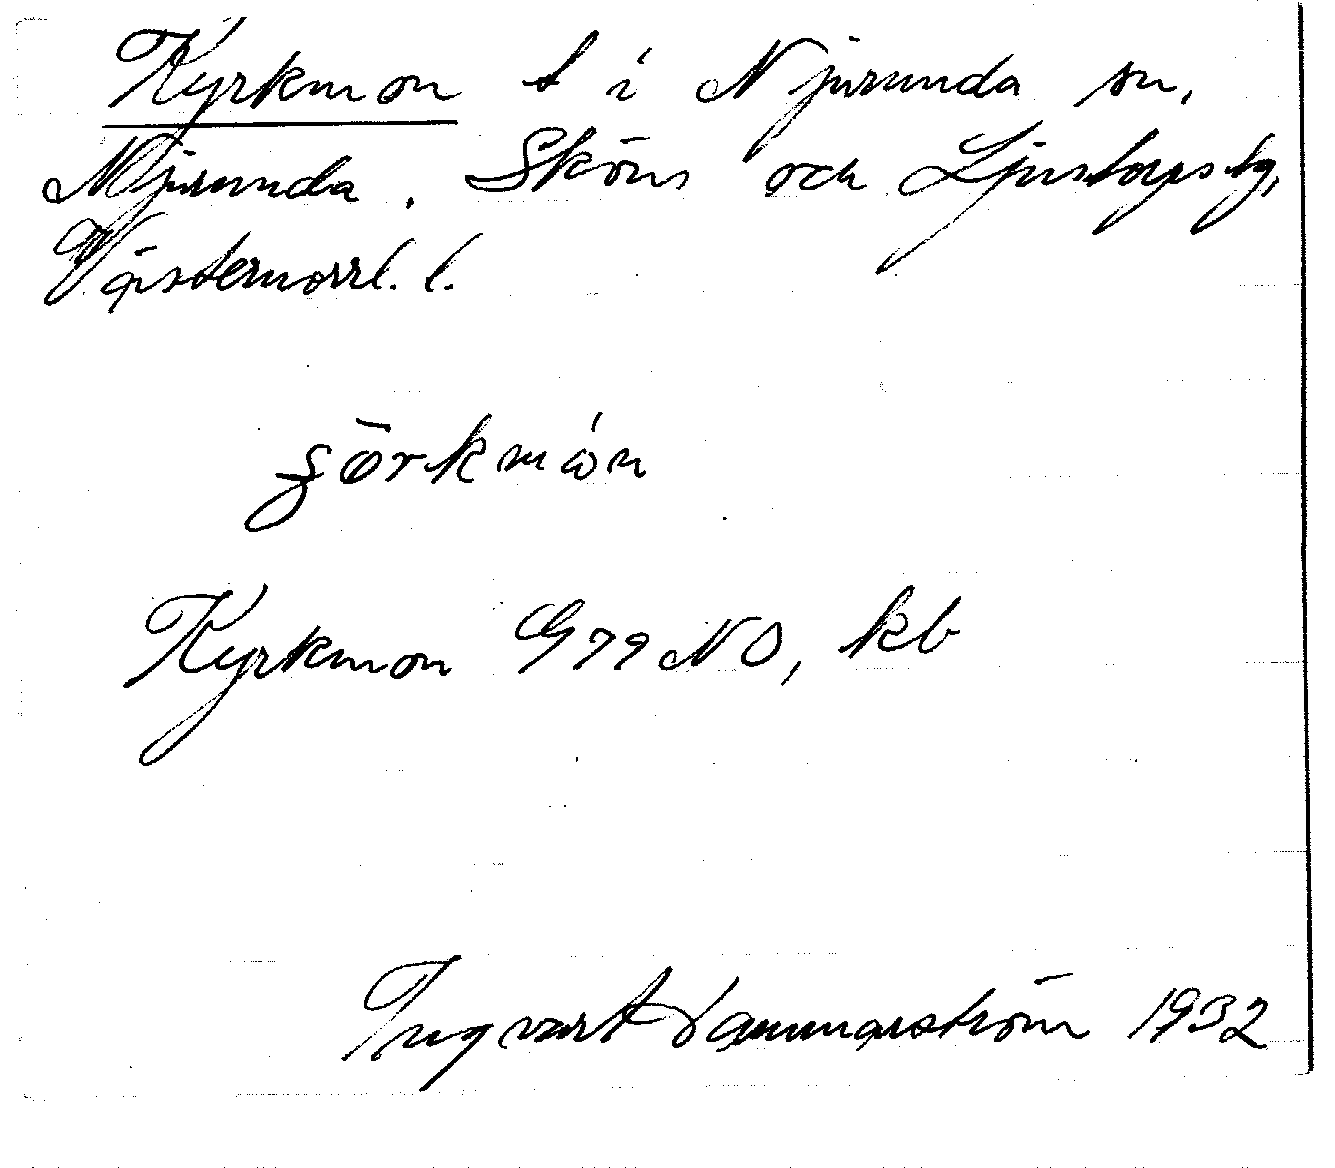 Kyrkmon t i Njurunda sn,
Njurunda, Sköns och Ljustorps tg,
Västernorrl. l.
Kyrkmon G79 NO, kb
Ingvart Hammarström 1932